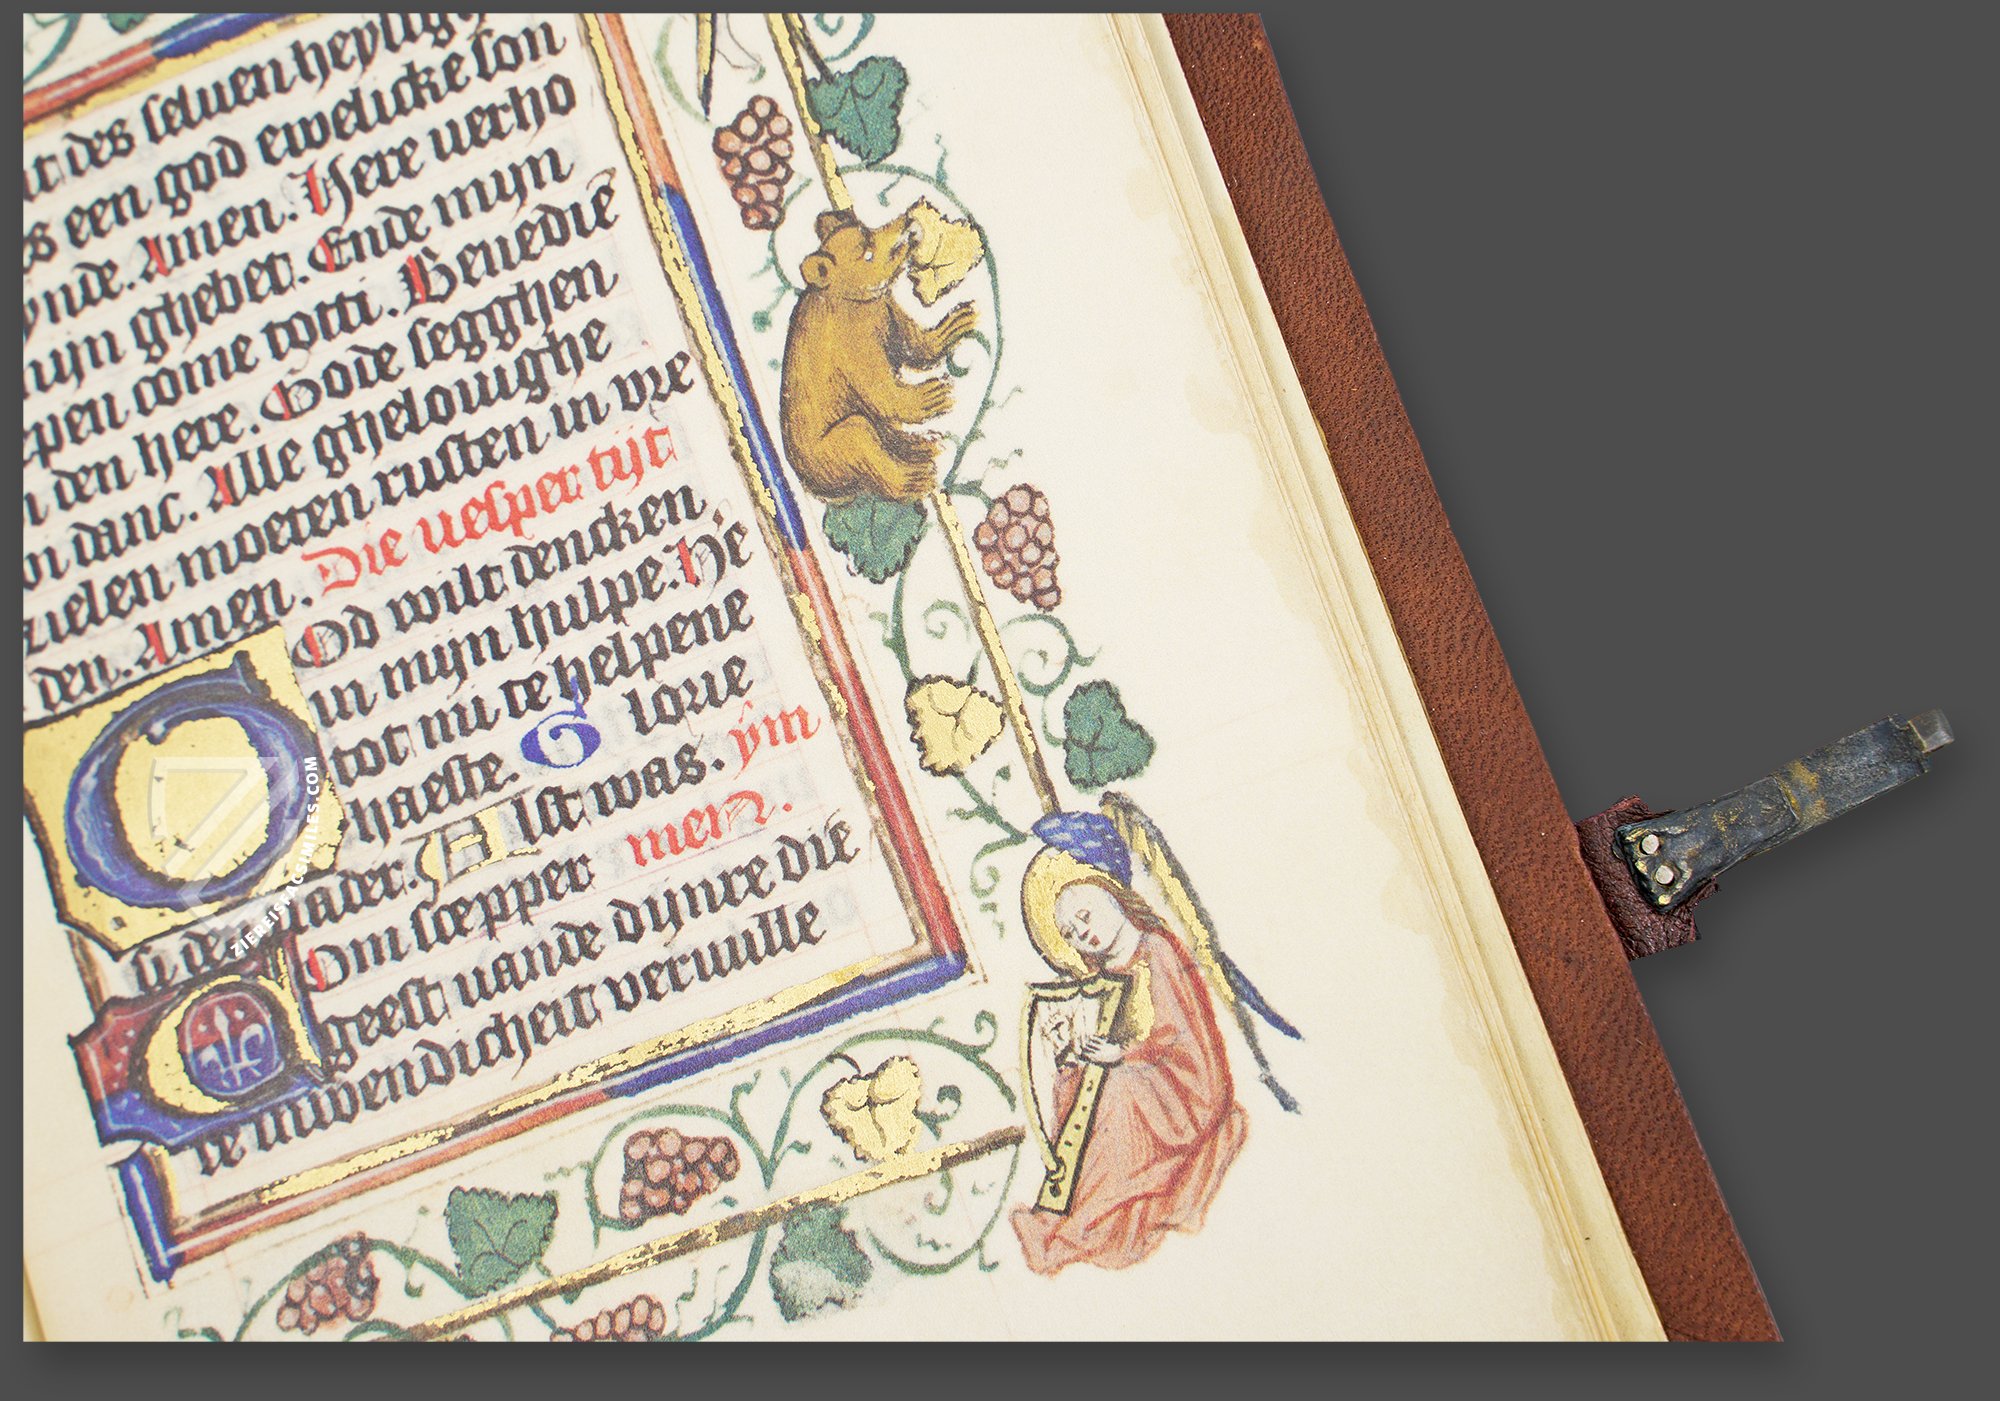 des seluen heylig
een god ewelicke son
ynde. Amen. Here uerho
mijn ghebet. Ende mijn
come totti. Benediē
den here. Gode segghen
danc. Alle ghelouighe
zielen moeten rusten in vre
den. Amen. Die uesper tijt
God wilt dencken
in mijn hulpe. He
tot mi te helpene
haeste. Glorie
Alst was. ym
men.
Om scepper
geest uande dijnre die
inwendicheit veruulle
ZIEREIS FACSIMILES.COM